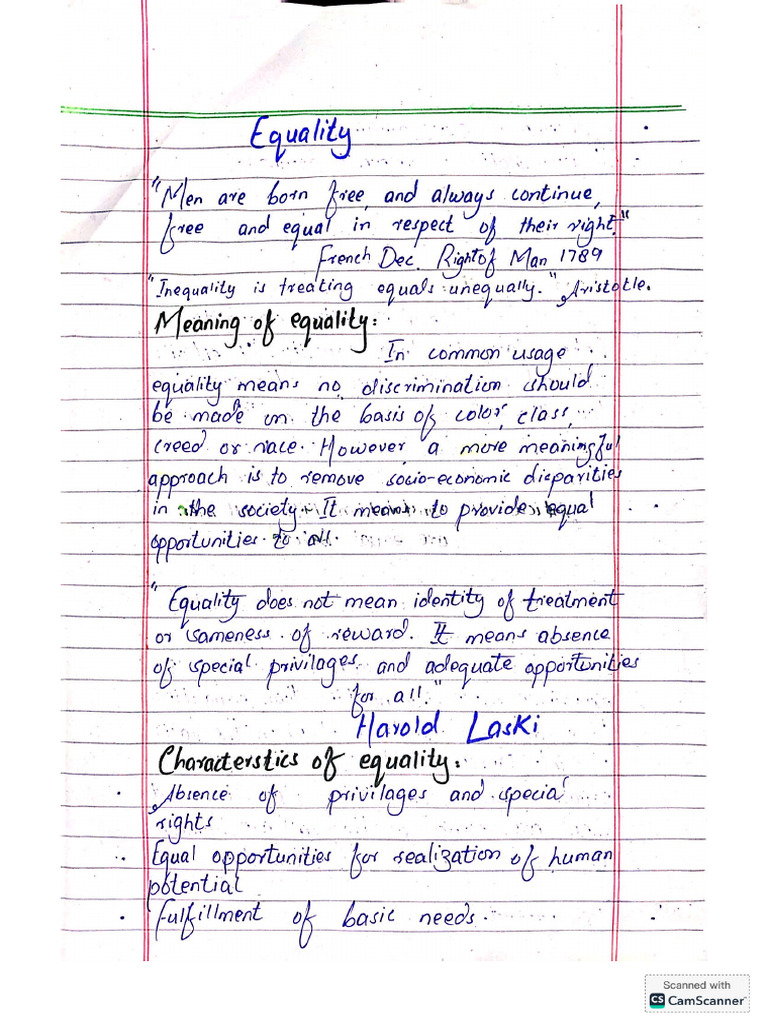 Equality
"Men are born free, and always continue,
free and equal in respect of their right."
French Dec. Right of Man 1789
"Inequality is treating equals unequally." Aristotle.
Meaning of equality:
In common usage
equality means no discrimination should
be made on the basis of color, class,
creed or race. However, a more meaningful
approach is to remove socio-economic disparities
in the society. It means to provide equal
opportunities to all.
"Equality does not mean identity of treatment
or sameness of reward. It means absence
of special privilages and adequate opportunities
for all."
Harold Laski
Characterstics of equality:
Absence of privilages and special
rights
Equal opportunities for realization of human
potential
Fulfillment of basic needs.
Scanned with
CS CamScanner